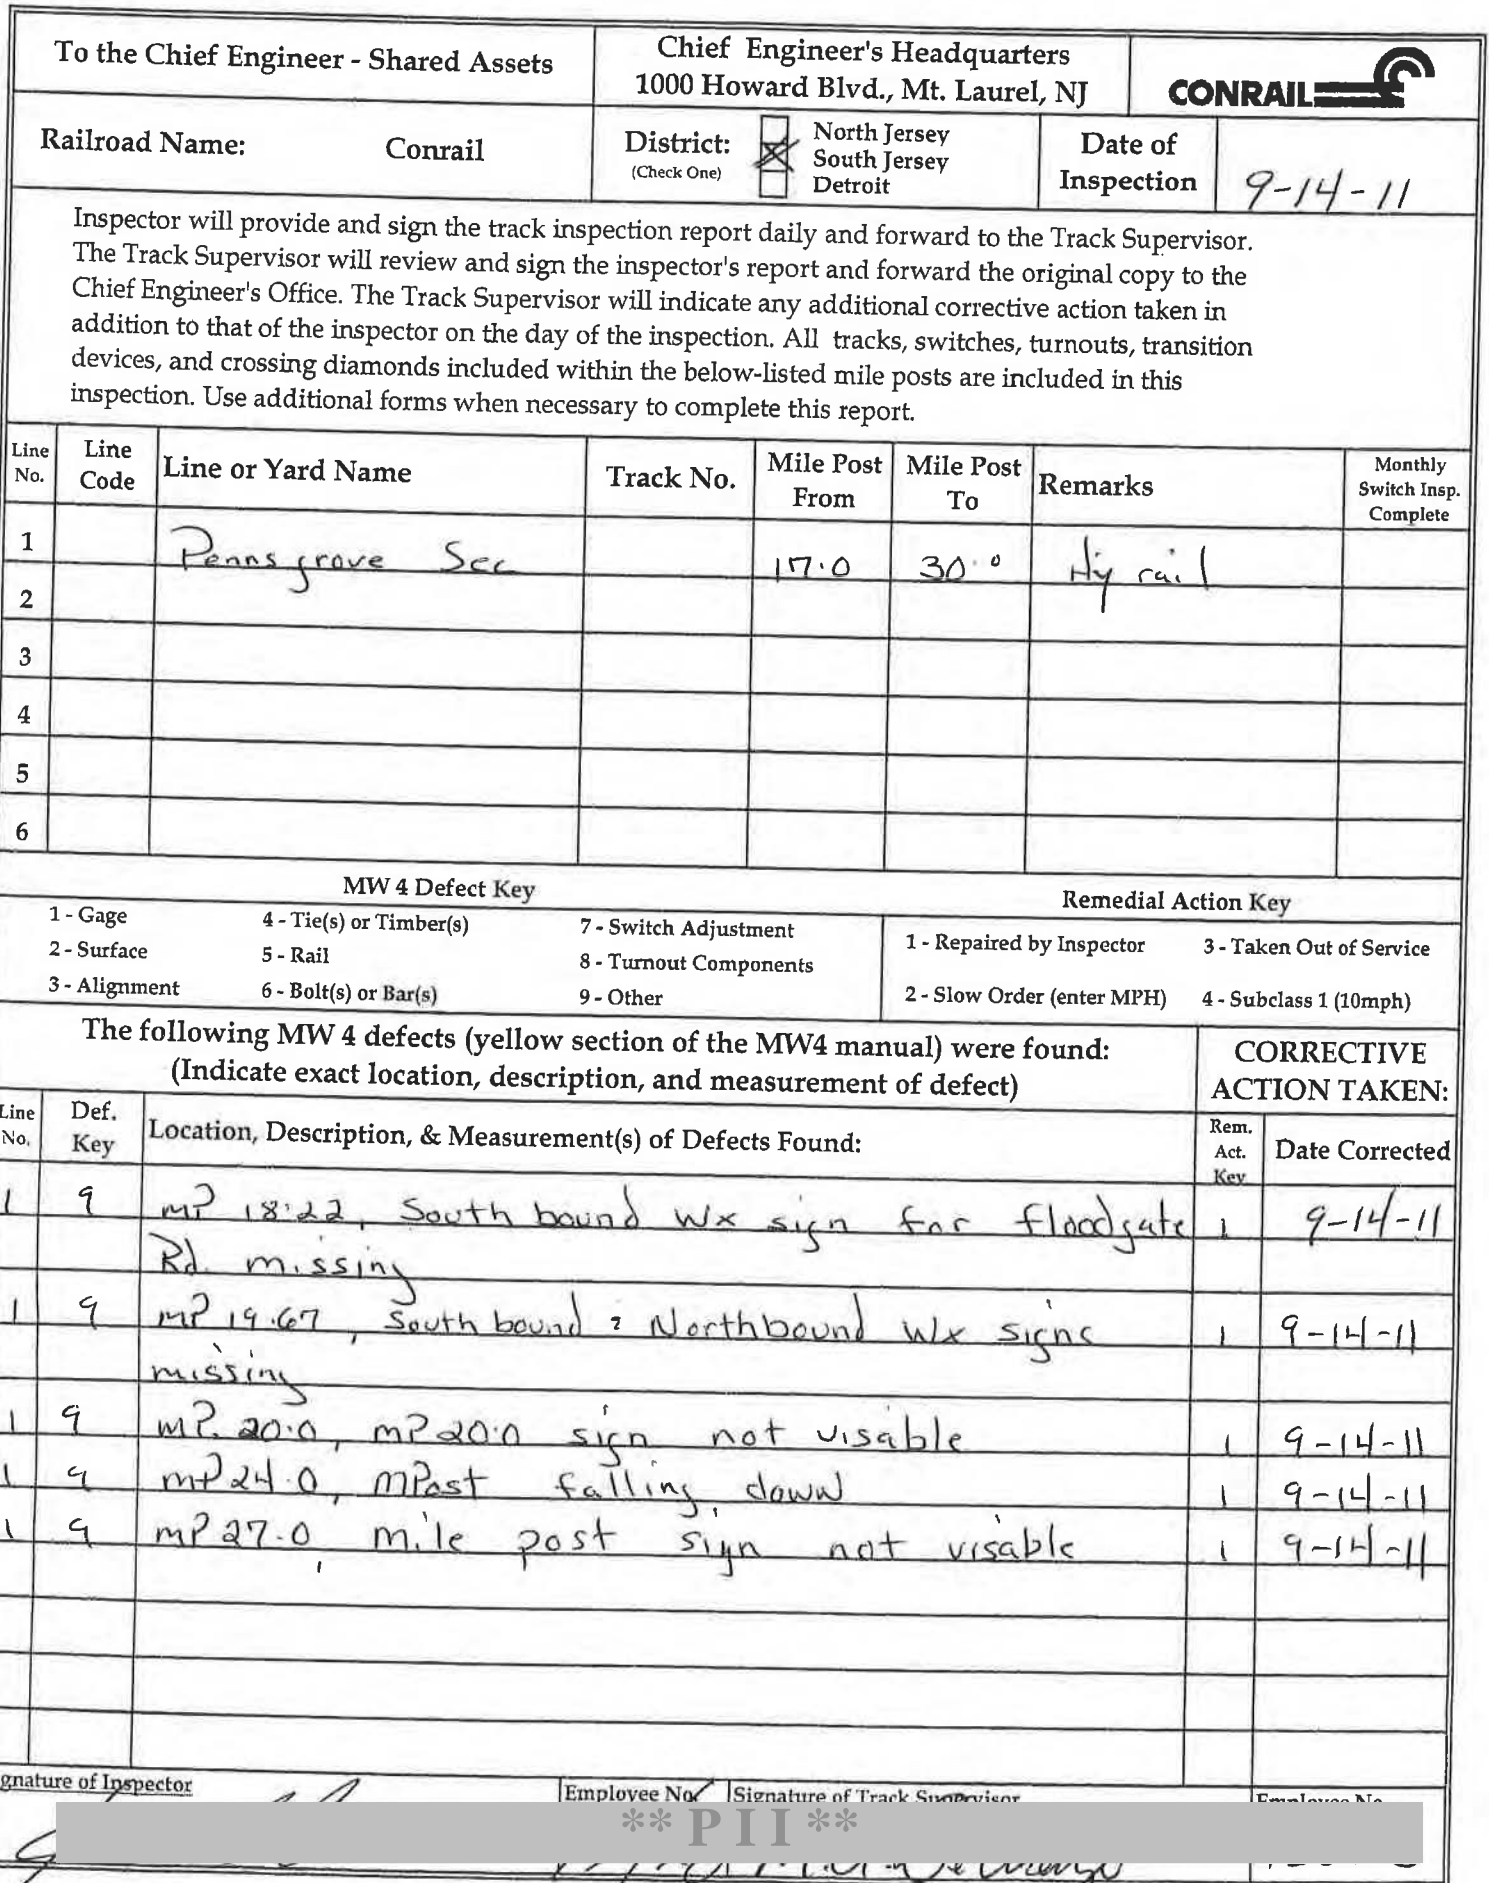 To the Chief Engineer - Shared Assets
Chief Engineer's Headquarters
1000 Howard Blvd., Mt. Laurel, NJ
CONRAIL
Railroad Name: Conrail
District:
(Check One)
North Jersey
South Jersey
Detroit
Date of
Inspection
9-14-11
Inspector will provide and sign the track inspection report daily and forward to the Track Supervisor.
The Track Supervisor will review and sign the inspector's report and forward the original copy to the
Chief Engineer's Office. The Track Supervisor will indicate any additional corrective action taken in
addition to that of the inspector on the day of the inspection. All tracks, switches, turnouts, transition
devices, and crossing diamonds included within the below-listed mile posts are included in this
inspection. Use additional forms when necessary to complete this report.
Line No. Line Code Line or Yard Name Track No. Mile Post From Mile Post To Remarks Monthly Switch Insp. Complete
1 Pennsgrove Sec 17.0 30.0 Hy rail
2
3
4
5
6
MW 4 Defect Key
Remedial Action Key
1 - Gage 4 - Tie(s) or Timber(s) 7 - Switch Adjustment
2 - Surface 5 - Rail 8 - Turnout Components
3 - Alignment 6 - Bolt(s) or Bar(s) 9 - Other
1 - Repaired by Inspector 3 - Taken Out of Service
2 - Slow Order (enter MPH) 4 - Subclass 1 (10mph)
The following MW 4 defects (yellow section of the MW4 manual) were found:
(Indicate exact location, description, and measurement of defect)
CORRECTIVE
ACTION TAKEN:
Line No. Def. Key Location, Description, & Measurement(s) of Defects Found: Rem. Act. Key Date Corrected
1 9 MP 18.22, South bound Wx sign for floodgate 1 9-14-11
Rd. missing
1 9 MP 19.67, South bound & Northbound Wx signs 1 9-14-11
missing
1 9 MP. 20.0, MP 20.0 sign not visable 1 9-14-11
1 9 MP 24.0, MPost falling down 1 9-14-11
1 9 MP 27.0, Mile post sign not visable 1 9-14-11
gnature of Inspector Employee No Signature of Track Supervisor Employee No
** P I I **